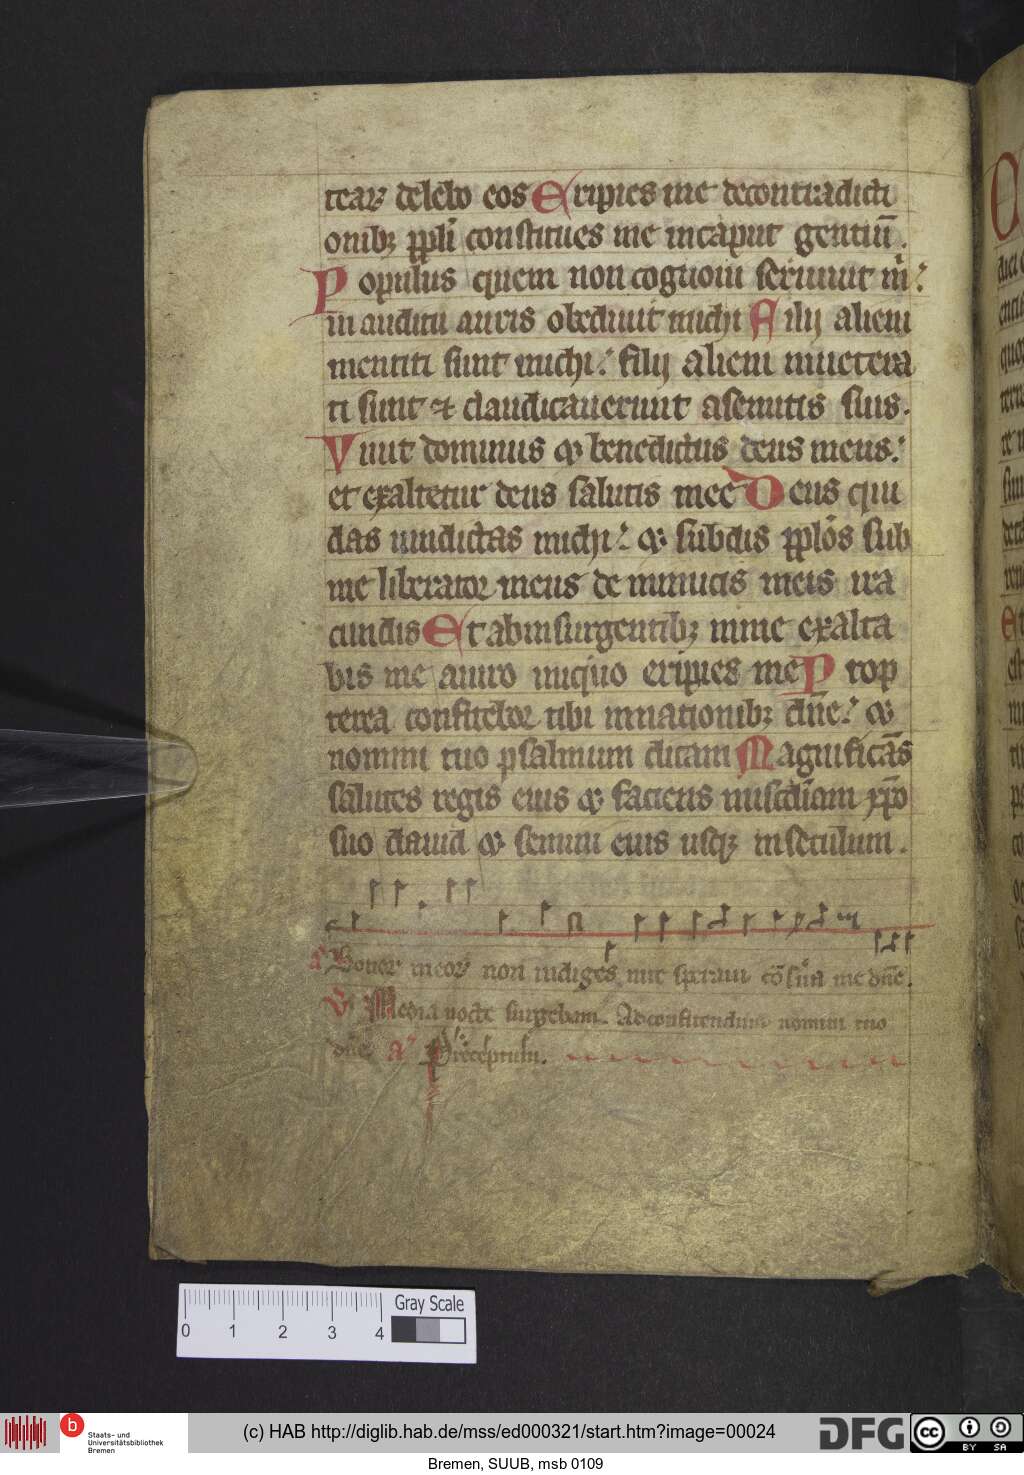 teaꝝ delebo eos Eripies me decontradicti
onibꝫ ppl̓i constitues me incaput gentiū.
Populus quem non cognoui seruiuit m̓:
in auditu auris obediuit michi Filij alieni
mentiti sunt michi: filij alieni inuetera
ti sunt ⁊ claudicauerunt asemitis suis.
Viuit dominus ⁊ benedictus deus meus:
et exaltetur deus salutis mee Deus qui
das uindictas michi: ⁊ subdis pplōs sub
me liberator meus de inimicis meis ira
cundis Et abinsurgentibꝫ inme exalta
bis me auiro iniquo eripies me Prop
terea confitebor tibi innationibꝫ dn̄e: ⁊
nomini tuo psalmum dicam Magnificās
salutes regis eius ⁊ faciens misc̄diam xp̄o
suo dauid ⁊ semini eius usqꝫ inseculum.
a Bonoꝝ meoꝝ non indiges inte speraui cōs̄ua me dn̄e.
V Media nocte surgebam. Adconfitendum nomini tuo
dn̄e a Preceptum.
0 1 2 3 4 Gray Scale
b Staats- und
Universitätsbibliothek
Bremen
(c) HAB http://diglib.hab.de/mss/ed000321/start.htm?image=00024
DFG cc BY SA
Bremen, SUUB, msb 0109